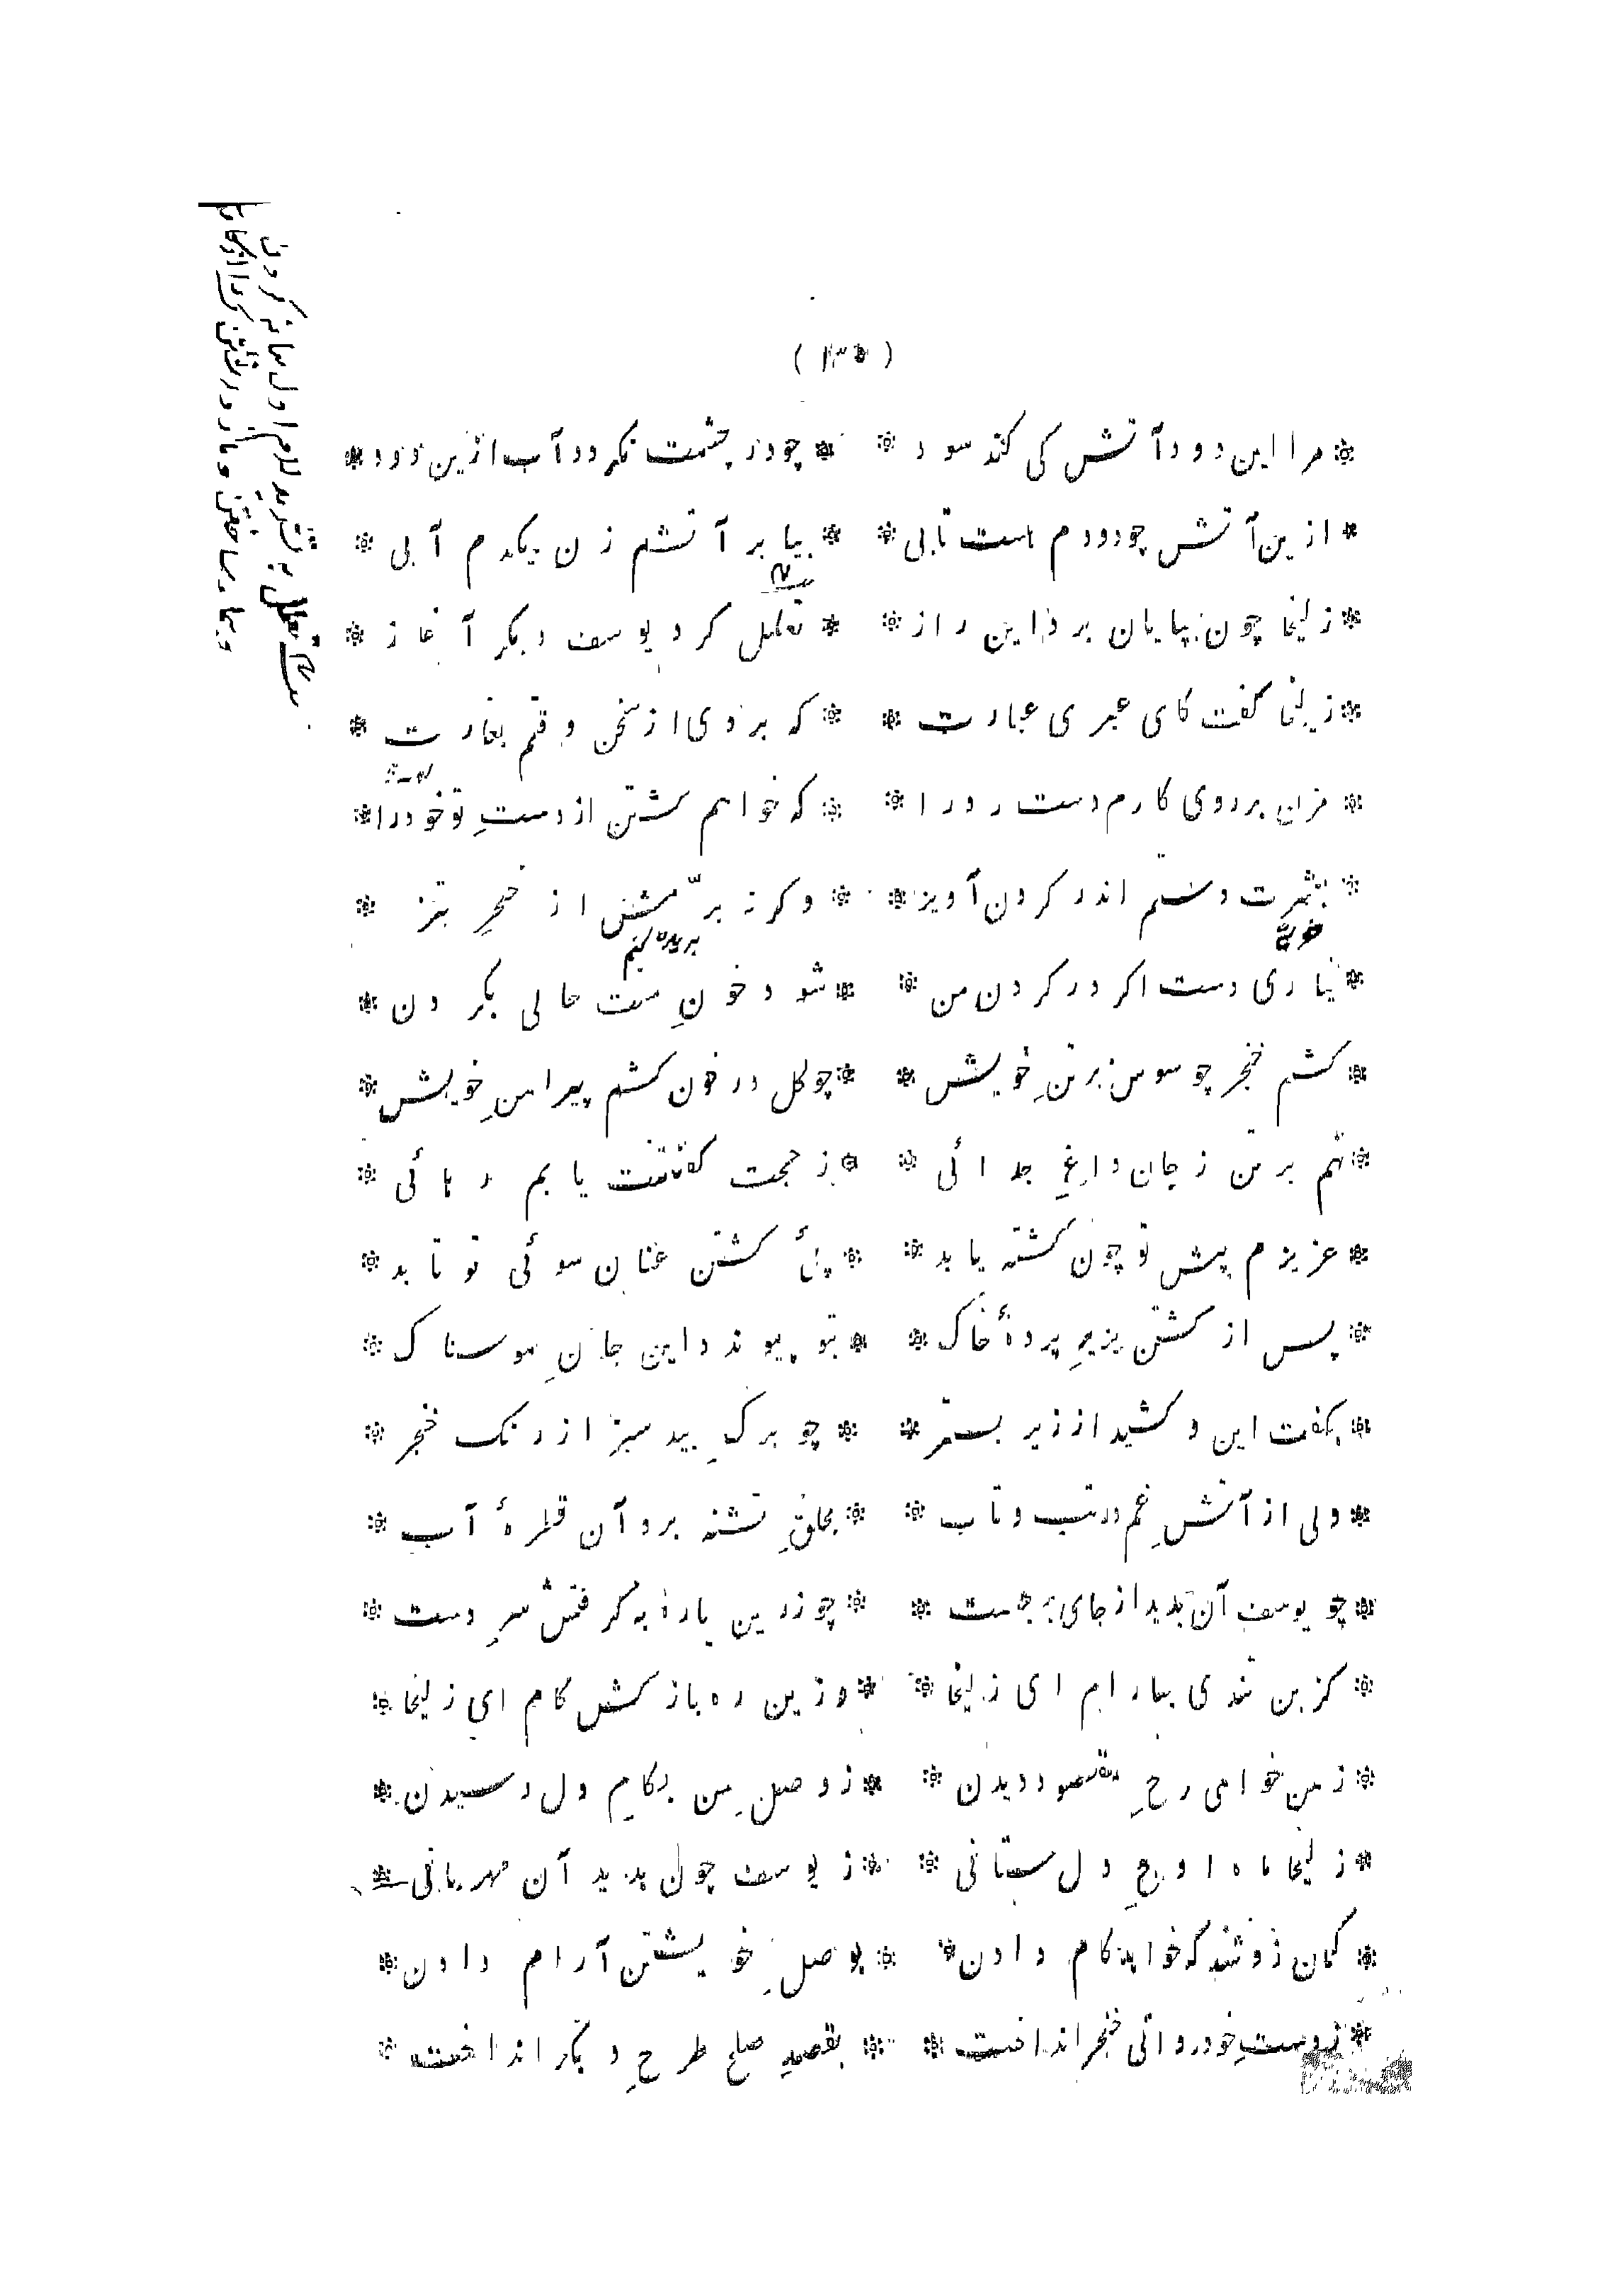 ( ١٣٥ )
* مرا این دود و آتش کی کند سود * * چو در چشمت نکردد آب ازین دود *
* ازین آتش چو دودم هست تابی * * بیا بر آتشم زن یکدم آبی *
* زلیخا چون بپایان برد این راز * * تعلل کرد یوسف دیکر آغاز *
* زلیخا کفت کای عبری عبارت * * که بردی از سخن وقتم بغارت *
* مزن بر روی کارم دست رد را * * که خواهم کشتن از دستِ تو خود را *
* دستم اندر کردن آویز * * وکرنه برّمش از خنجرِ تیز *
بریده کنم
* نیاری دست اکر در کردن من * * شود خونِ منت حالی بکردن *
* کشم خنجر چو سوسن بر تنِ خویش * * چو کل در خون کشم پیراهنِ خویش *
* نهم بر تن ز جان داغِ جدائی * * ز حجت کفتنت یابم رهائی *
* عزیزم پیش تو چون کشته یابد * * پئ کشتن عنان سوئی تو تابد *
* پس از کشتن بزیرِ پردهٔ خاک * * بتو پیوندد این جانِ هوسناک *
* بکفت این و کشید از زیر بستر * * چو برکِ بید سبز از رنک خنجر *
* ولی از آتشِ غم در تب و تاب * * بحلقِ تشنه برد آن قطرهٔ آب *
* چو یوسف آن بدید از جای برجست * * چو زرین یاره بکرفتش سرِ دست *
* کزین تندی بیارام ای زلیخا * * وزین ره باز کش کام ای زلیخا *
* ز من خواهی رخِ مقصود دیدن * * ز وصلِ من بکامِ دل رسیدن *
* زلیخا ماه اوجِ دل ستانی * * ز یوسف چون بدید آن مهربانی *
* کمان زو شد که خواهد کام دادن * * بوصلِ خویشتن آرام دادن *
* ز دستِ خود روانی خنجر انداخت * * بقصدِ صلح طرحِ دیکر انداخت *
تعلل به تشدید لام اول بهانه کردن